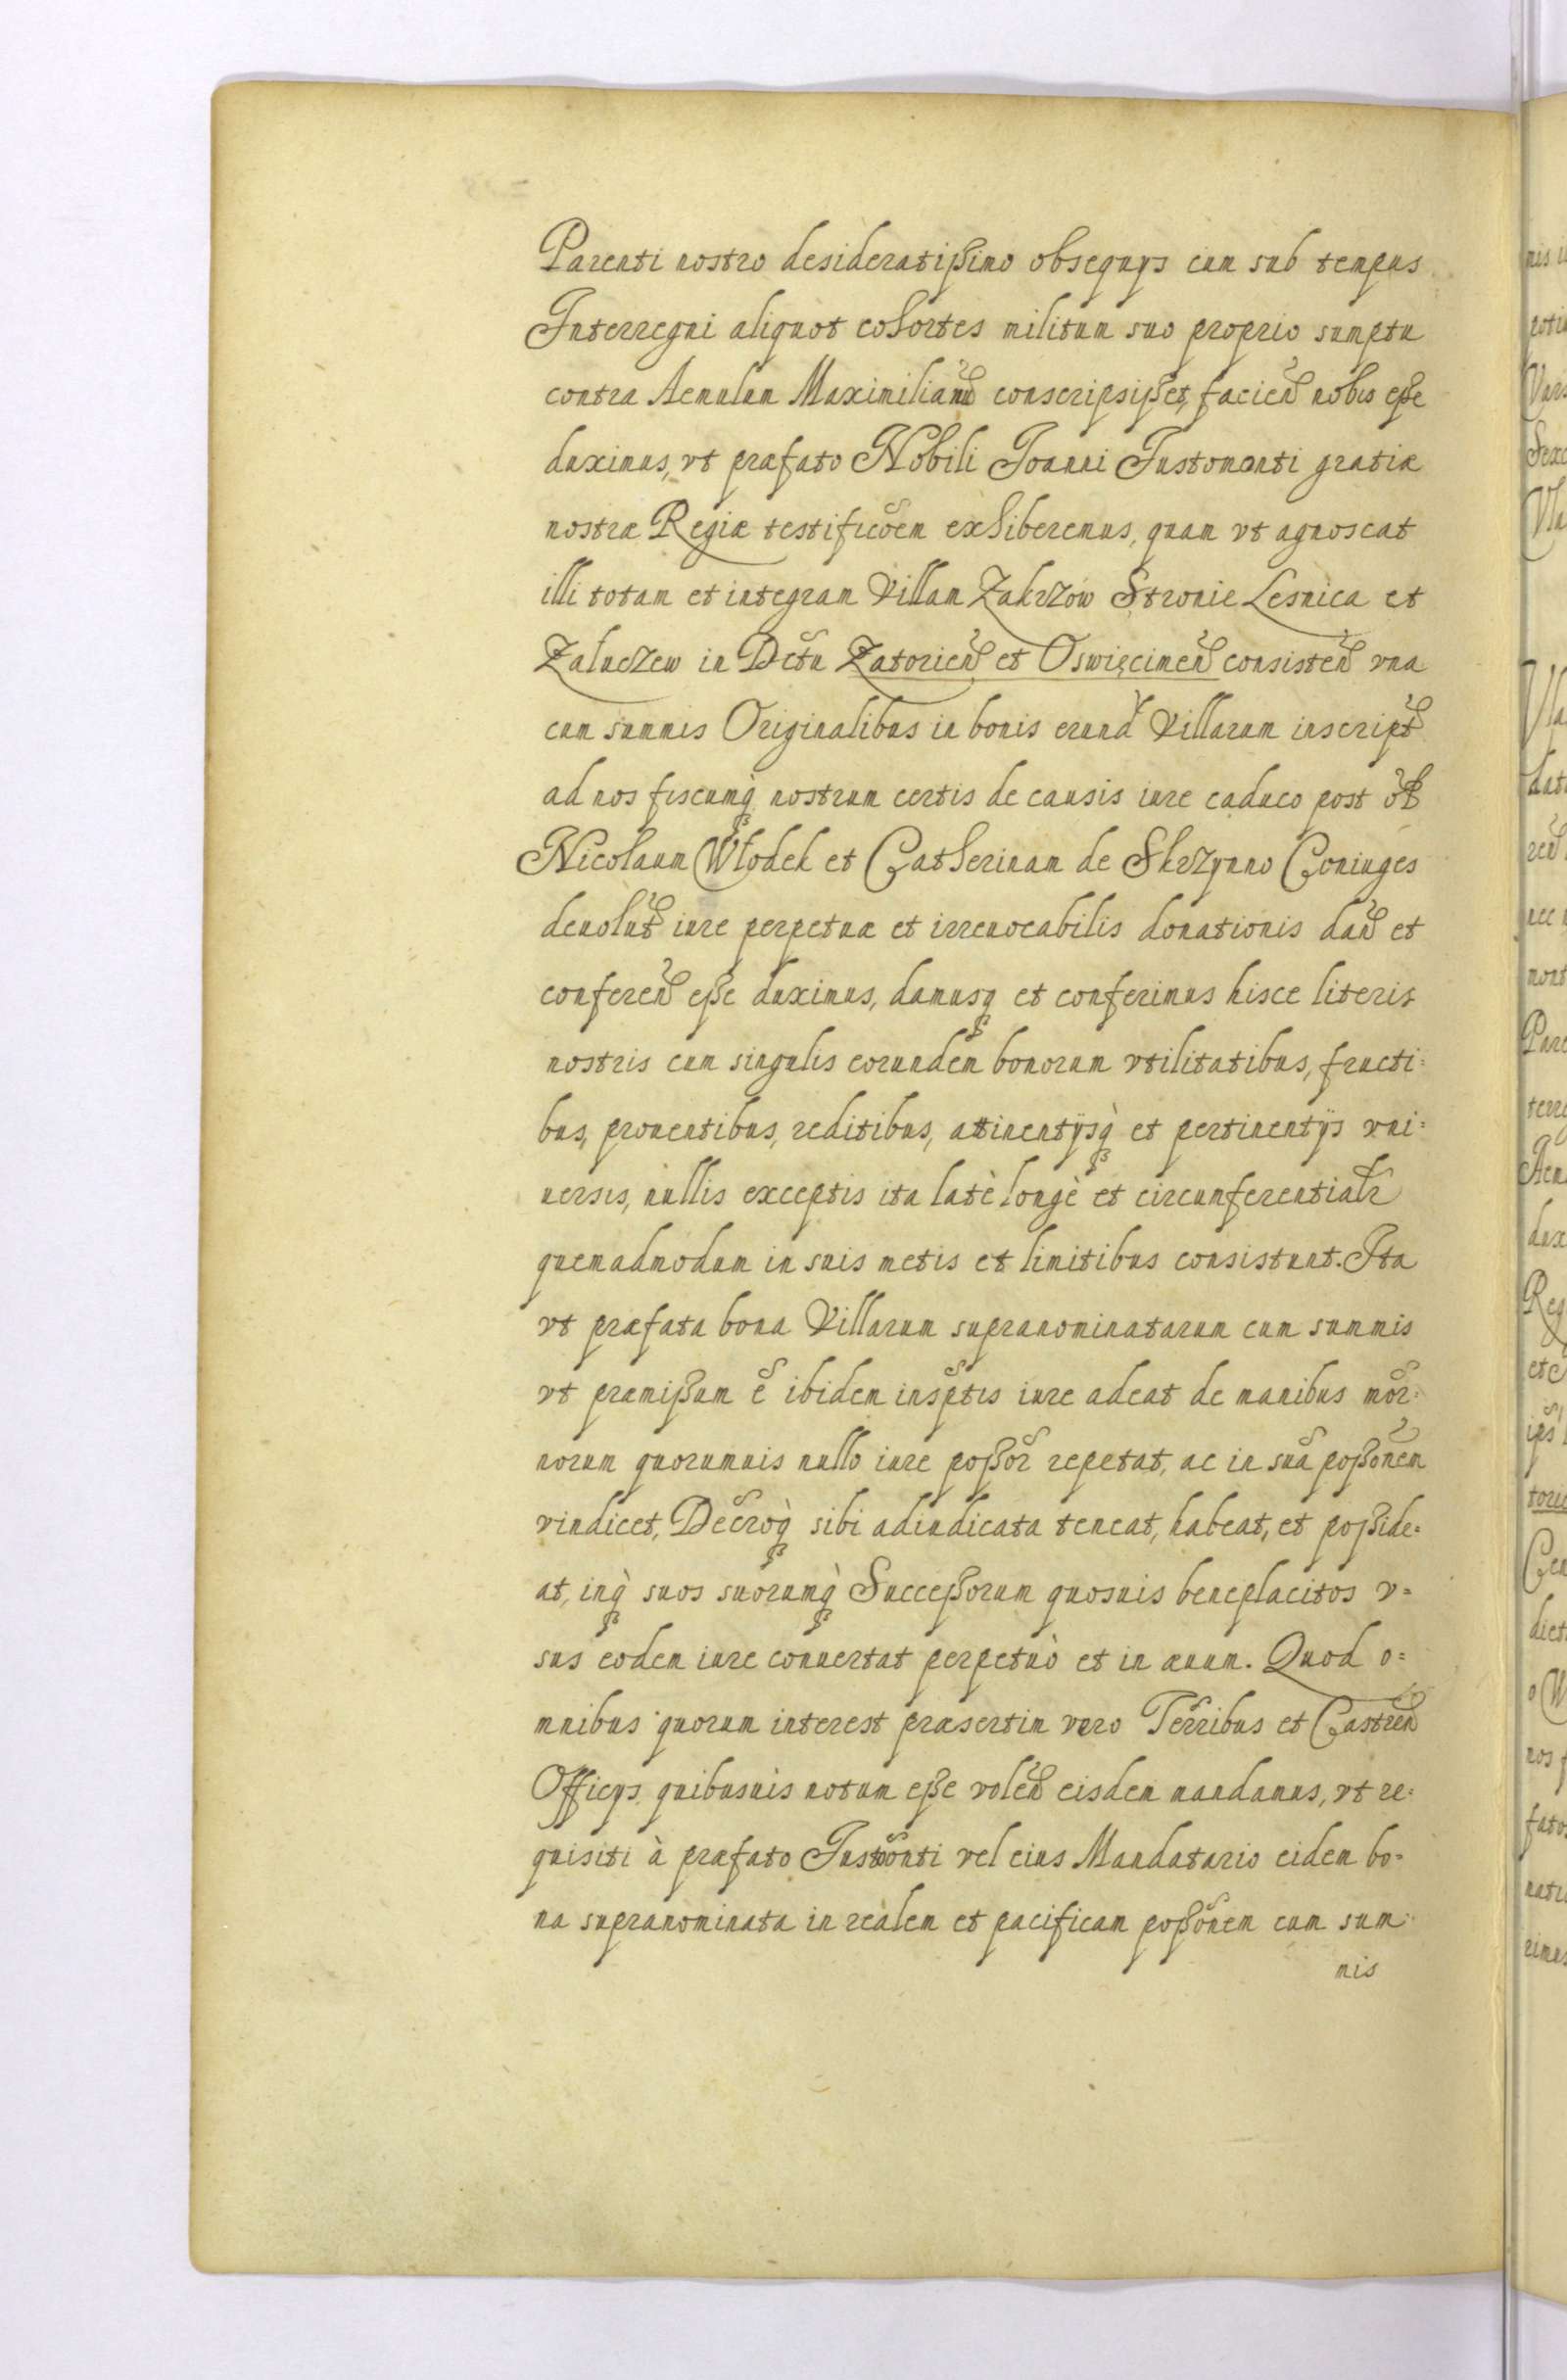 Parenti nostro desideratißimo obsequys cum sub tempus
Interregni aliquot cohortes militum suo proprio sumptu
contra Aemulum Maximilianũ conscripsißet, faciend nobis eße
duximus, vt præfato Nobili Joanni Justomonti gratiæ
nostræ Regiæ testificõem exhiberemus, quam vt agnoscat
illi totam et integram Villam Zakrzow Stronie Lesnica et
Zaluczew in Dctu Zatorien et Oswięcimen consisten vna
cum summis Originalibus in bonis earund Villarum inscript
ad nos fiscumq̀ nostrum certis de causis iure caduco post ob
Nicolaum Włodek et Catherinam de Skrzynno Coniuges
deuolut iure perpetuæ et irreuocabilis donationis dand et
conferend eße duximus, damusq et conferimus hisce literis
nostris cum singulis eorundem bonorum vtilitatibus, fructi=
bus, prouentibus, reditibus, attinentÿsq̀ et pertinentÿs vni=
uersis, nullis exceptis ita latè longè et circumferentialr
quemadmodum in suis metis et limitibus consistunt. Ita
vt præfata bona Villarum supranominatarum cum summis
vt præmißum ẽ ibidem insptis iure adeat de manibus mõr=
norum quorumuis nullo iure poßõr repetat, ac in suã poßonem
vindicet, Decroq̀ sibi adiudicata teneat, habeat, et poßide=
at, inq̀ suos suorumq̀ Succeßorum quosuis beneplacitos v=
sus eodem iure conuertat perpetuò et in æuum. Quod o=
mnibus quorum interest præsertim vero Terribus et Castren
Officys quibusuis notum eße volen eisdem mandamus, vt re=
quisiti à præfato Justõnti vel eius Mandatario eidem bo=
na supranominata in realem et pacificam poßõnem cum sum=
mis